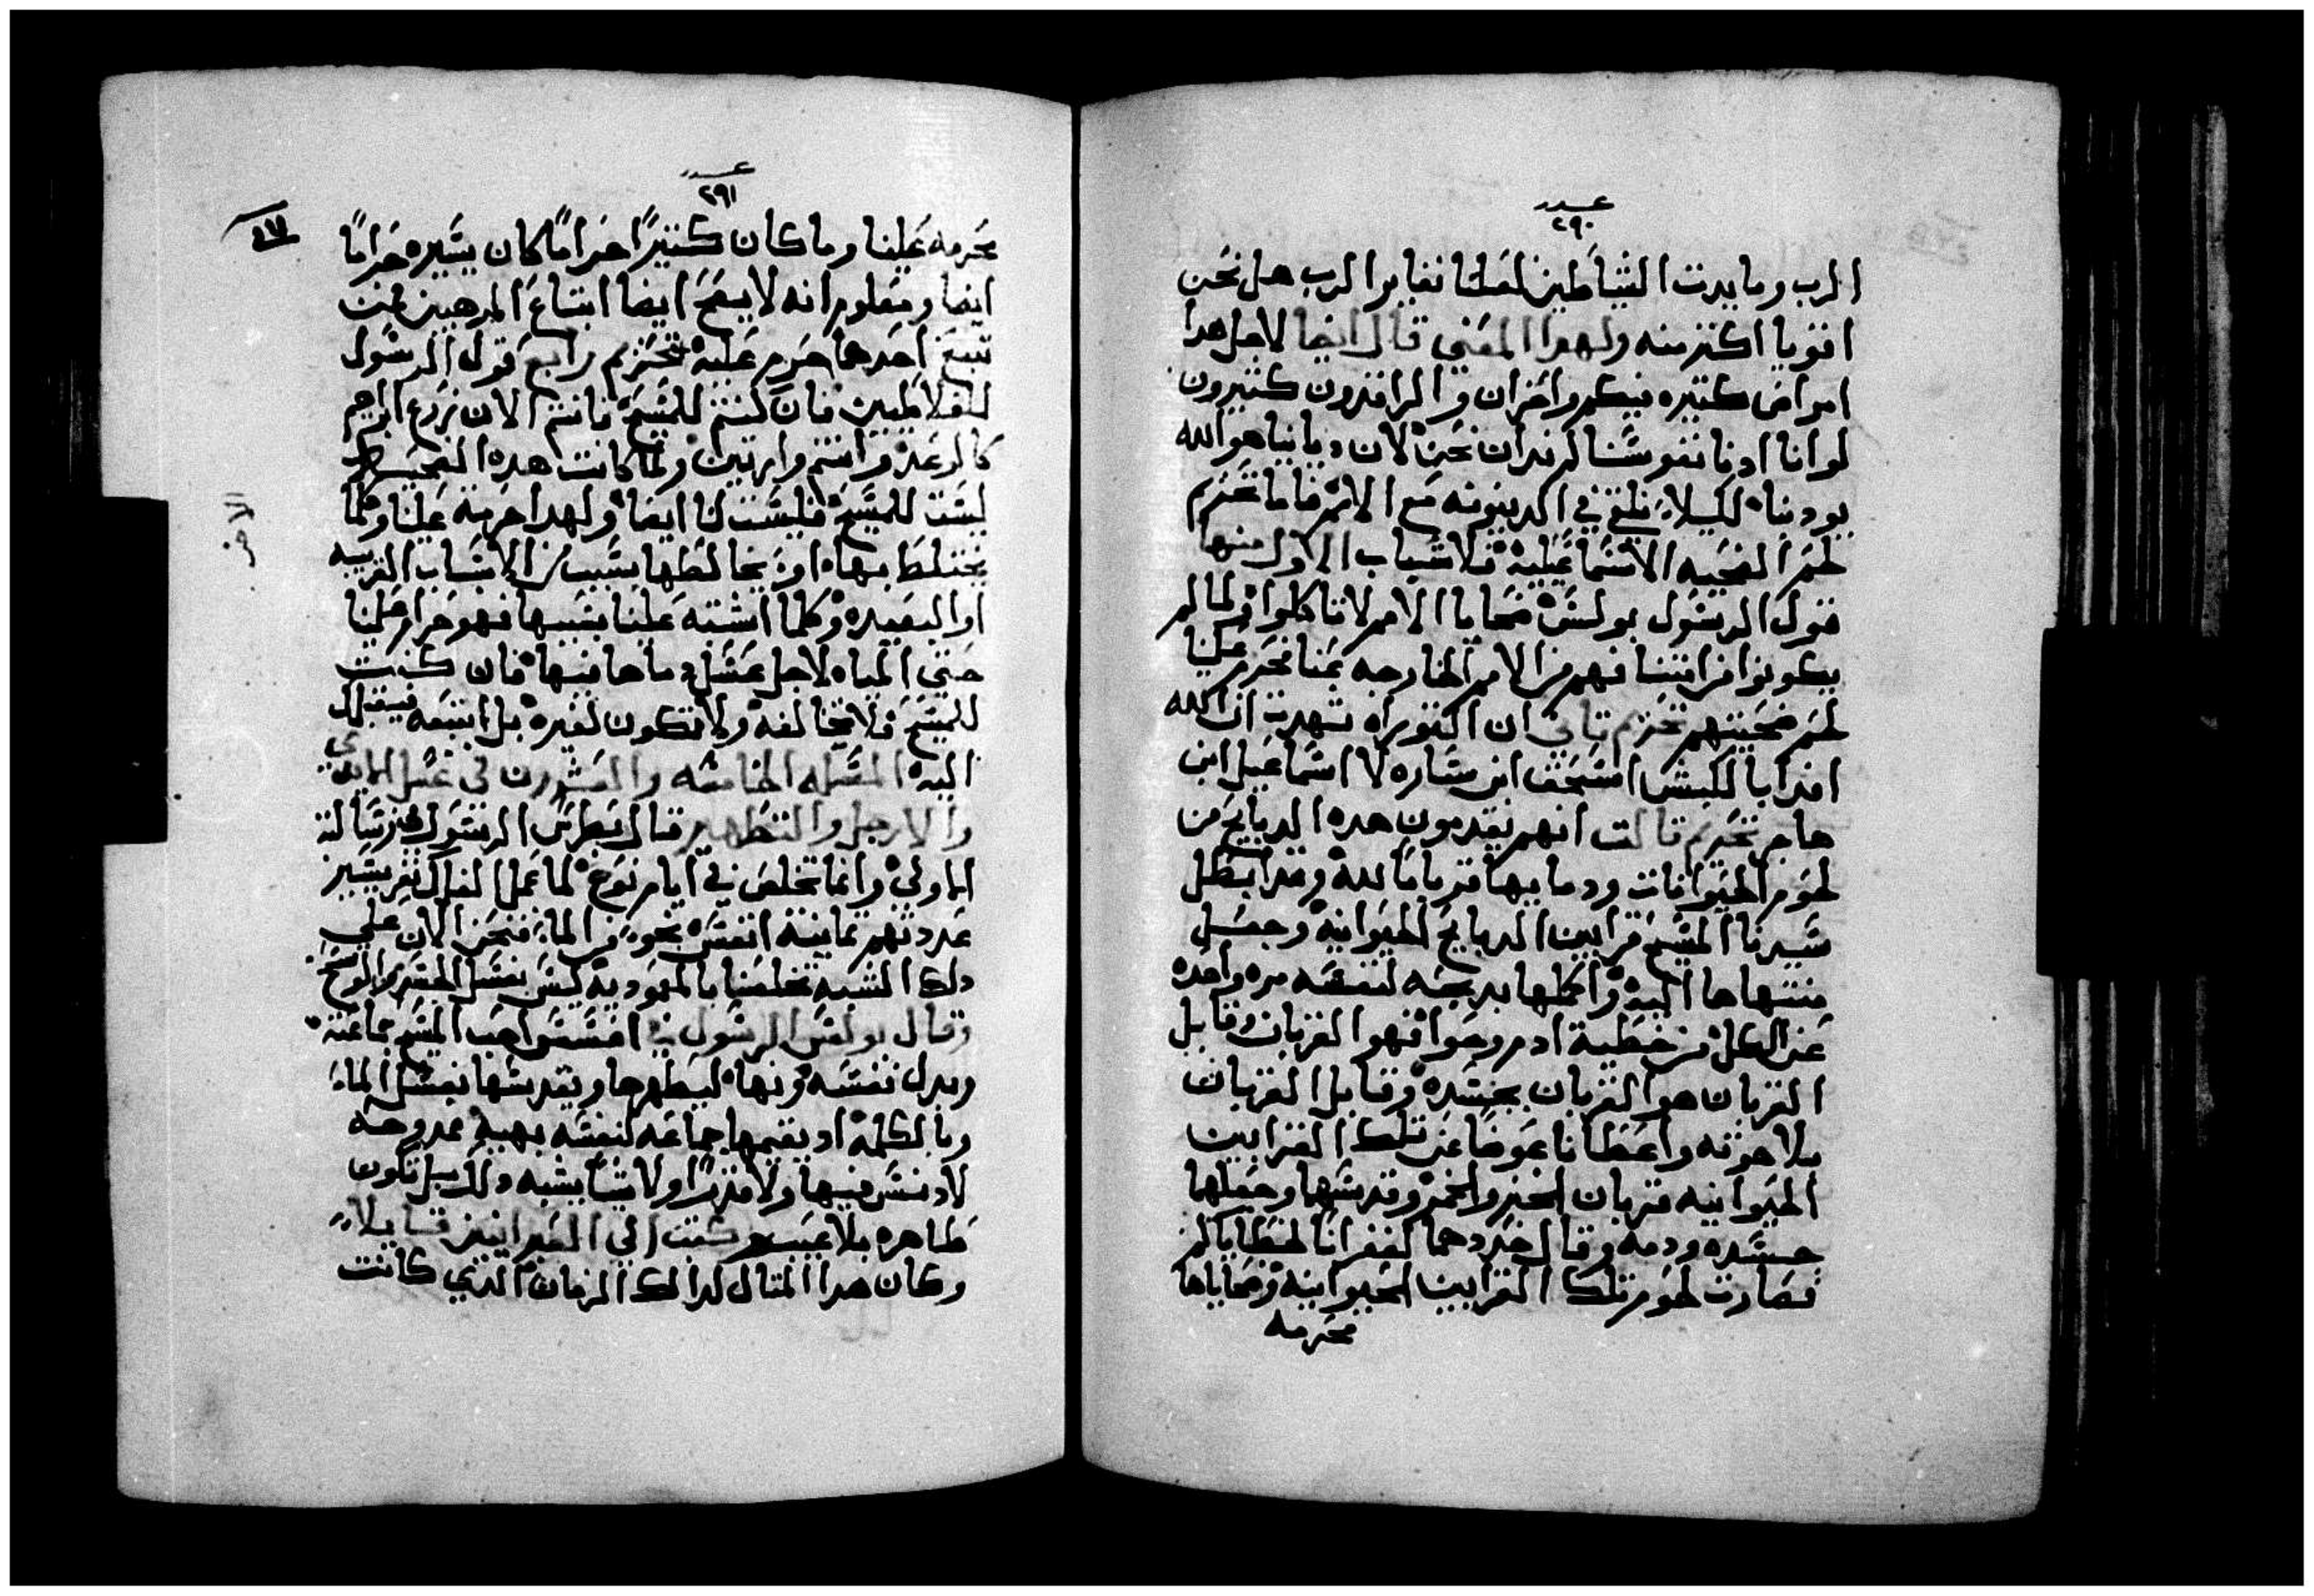 عدد
٢٩٠
الرب ومايدت الشياطين لعلنا نغاير الرب هل نحن
اقويا اكتر منه ولهدا المعني قال ايضا لاجل هدا
امراض كتيره فيكم واحزان والراقدون كتيرون
لو اننا ادنا نفوسنا لم ندان نحن لان ديانيا هو الله
يودبنا لكيلا نلقي في الدينونه مع الامم فاما تحريم
لحم الضحيه الاسماعيليه فلاسباب الاول منها
قول الرسول بولس ضحايا الامم لا تاكلوا ولما لم
يكونوا من امتنا فهم من الامم الخارجه عنا فحرم علينا
لحم ضحيتهم تحريم تاني ان التوراه تشهد ان الله
افدا بالكبش اسحق ابن ساره لا اسماعيل ابن
هاجر تحريم تالت انهم يقدمون هده الدبايح من
لحوم الحيوانات ودماييها قربانا لله وقد ابطل
سيدنا المسيح قرابين الدبايح الحيوانيه وجعل
منتهاها اليه واكملها بدبحه لنفسه مره واحده
عن الكل من خطية ادم وحوا فهو القربان وقابل
القربان هو القربان بجسده وقابل القربان
بلاهوته واعطانا عوضا عن تلك القرابين
الحيوانيه قربان الخبز والخمر وقدسهما وجعلهما
جسده ودمه وقال خدوهما لغفرانا لخطاياكم
فصارت لحوم تلك القرابين الحيوانيه وضحاياها
محرمه
عدد
٢٩١
محرمه علينا وما كان كتيرًا حرامًا كان يسيره حرامًا
ايضا ومعلوم انه لا يصح ايضا اتباع المدهبين فمن
تبع احدها حرم عليه تحريم رابع قول الرسول
للغلاطيين فان كنتم للمسيح فانتم الان زرع ابراهيم
كالوعد وانتم وارتين ولما كانت هده الضحيه
ليست للمسيح فليست لنا ايضا ولهدا حرمة علينا وكلما
يختلط بها او يخالطها بسبب من الاسباب القريبه
او البعيده وكلما اشتبه علينا بسببها فهو حرام علينا
حتي المياه لاجل غسل دماها فيها فان كنت
للمسيح فلا تخالفه ولا تكون لغيره بل اتبعه فيقبلك
اليه المسله الخامسه والعشرون في غسل الايدي
والارجل والتطهير قال بطرس الرسول في رسالته
الاولي وانما تخلص في ايام نوح لما عمل الفلك نفر يسير
عددتهم تمانية انفس نجوه من الماء فنحن الان علي
دلك الشبه تخلصنا بالمعموديه ليس بغسل الجسد من الوسخ
وقال بولس الرسول في افسس احب المسيح جماعته
وبدل نفسه دونها ليطهرها ويقدسها بغسل الماء
وبالكلمة اد يقيمها جماعه لنفسه بهيه ممدوحه
لا دنس فيها ولا قدرًا ولا شيا يشبه دلك بل تكون
طاهره بلا عيب وكتب الي العبرانيين قايلاً
وكان هدا المتال لدالك الزمان الدي كانت